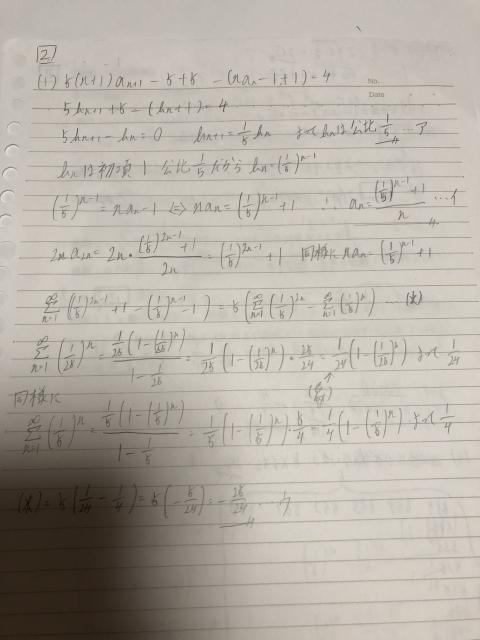 2
No.
Date
(1) 5(n+1)aₙ₊₁ - 5 + 5 - (naₙ - 1 + 1) = 4
5bₙ₊₁ + 5 - (bₙ + 1) = 4
5bₙ₊₁ - bₙ = 0 bₙ₊₁ = 1/5 bₙ よって bₙは公比 1/5 … ア
bₙは初項 1 公比 1/5 だから bₙ = (1/5)^(n-1)
(1/5)^(n-1) = naₙ - 1 ⇔ naₙ = (1/5)^(n-1) + 1 ∴ aₙ = ((1/5)^(n-1) + 1)/n … イ
2n a₂ₙ = 2n・((1/5)^(2n-1) + 1)/2n = (1/5)^(2n-1) + 1 同様に naₙ = (1/5)^(n-1) + 1
∞Σn=1 ((1/5)^(2n-1) + 1 - (1/5)^(n-1) - 1) = 5(∞Σn=1 (1/5)^(2n) - ∞Σn=1 (1/5)^n) … (*)
∞Σn=1 (1/25)^n = (1/25 (1 - (1/25)^n))/(1 - 1/25) = 1/25 (1 - (1/25)^n)・25/24 = 1/24 (1 - (1/25)^n) よって 1/24
同様に
∞Σn=1 (1/5)^n = (1/5 (1 - (1/5)^n))/(1 - 1/5) = 1/5 (1 - (1/5)^n)・5/4 = 1/4 (1 - (1/5)^n) よって 1/4
(*) = 5(1/24 - 1/4) = 5(-5/24) = -25/24 … ウ